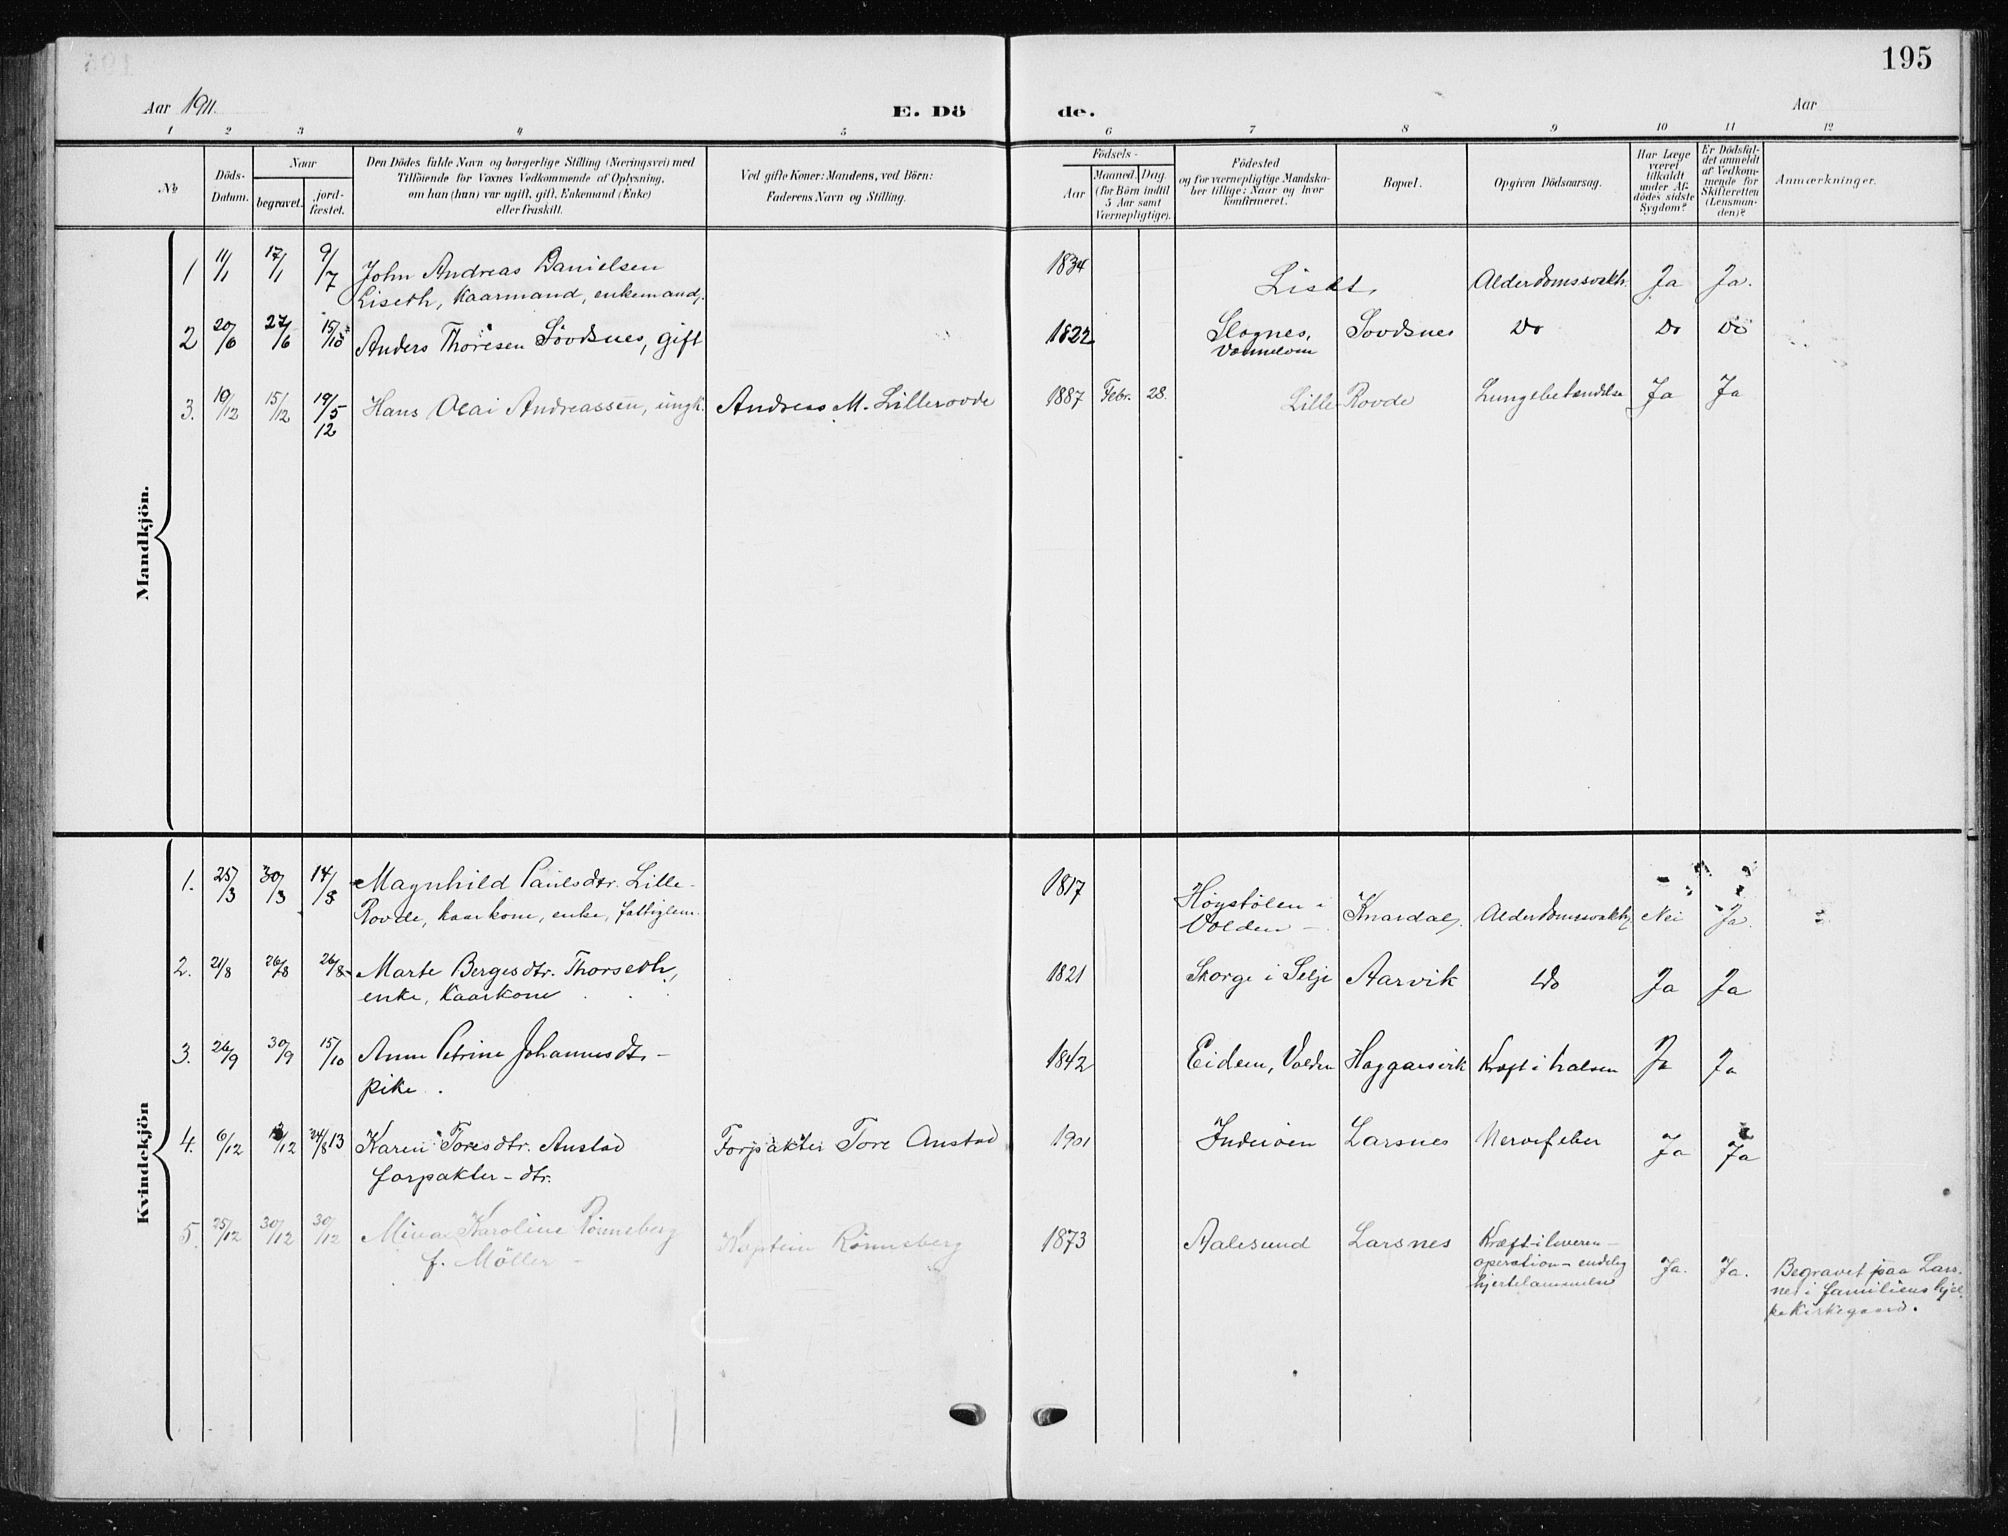 195
Aar 1911.
E. Dö de.
Aar
1 2 3 4 5 6 7 8 9 10 11 12
No
Döds-
Datum.
Naar
begravet.
jord-
fæstet.
Den Dödes fulde Navn og borgerlige Stilling (Næringsvei) med
Tilföiende for Voxnes Vedkommende af Oplysning,
om han (hun) var ugift, gift, Enkemand (Enke)
eller fraskilt.
Ved gifte Koner: Mandens, ved Börn:
Faderens Navn og Stilling.
Födsels-
Aar
Maaned. Dag.
(for Börn indtil
5 Aar samt
Værnepligtige).
Födested
og for værnepligtige Mandska-
ber tillige: Naar og hvor
konfirmeret.
Bopæl.
Opgiven Dödsaarsag.
Har Læge
været
tilkaldt
under Af-
dödes sidste
Sygdom?
Er Dödsfal-
det anmeldt
af Vedkom-
mende for
Skifteretten
(Lensman-
den)?
Anmærkninger.
Mandkjön.
1 11/1 17/1 9/7 John Andreas Danielsen
Liseth, kaarmand, enkemand. 1834 Liset. Alderdomssvakh. Ja Ja.
2 20/6 27/6 15/10 Anders Thoresen Sövdsnes, gift 1822 Slagnes, Sovdsnes Do Do Do
Vannelven
3. 10/12 15/12 19/5 12 Hans Olai Andreassen, ungk. Andreas M. Lillerovde 1887 Febr. 28. Lille-Rovde Lungebetændelse Ja Ja
Kvindekjön
1. 25/3 30/3 14/8 Magnhild Paulsdtr. Lille-
Rovde, kaarkone, enke, fattiglem. 1817 Høystølen i
Volden - Knardal. Alderdomssvakh. Nei Ja.
2. 21/8 26/8 26/8 Marte Bergesdtr. Thorseth,
enke, kaarkone 1821 Skorge i Selje Aarvik Do Ja Ja
3. 26/9 30/9 15/10 Anne Petrine Johannesdtr -
pike. 1842 Eidem, Volden Haggarsvik Kræft i halsen Ja Ja
4. 6/12 /12 24/8 13 Karen Toresdtr. Anstad
forpakter-dtr. Forpakter Tore Anstad 1901 Inderøen Larsnes Nervefeber Ja Ja
5. 25/12 30/12 30/12 Mina Karoline Rønneberg
f. Möller - Kaptein Rönneberg 1873 Aalesund Larsnes Kræft i leveren -
operation - endelig
hjertelammelse Ja. Ja. Begravet paa Lars-
nes i familiens
kirkegaard.